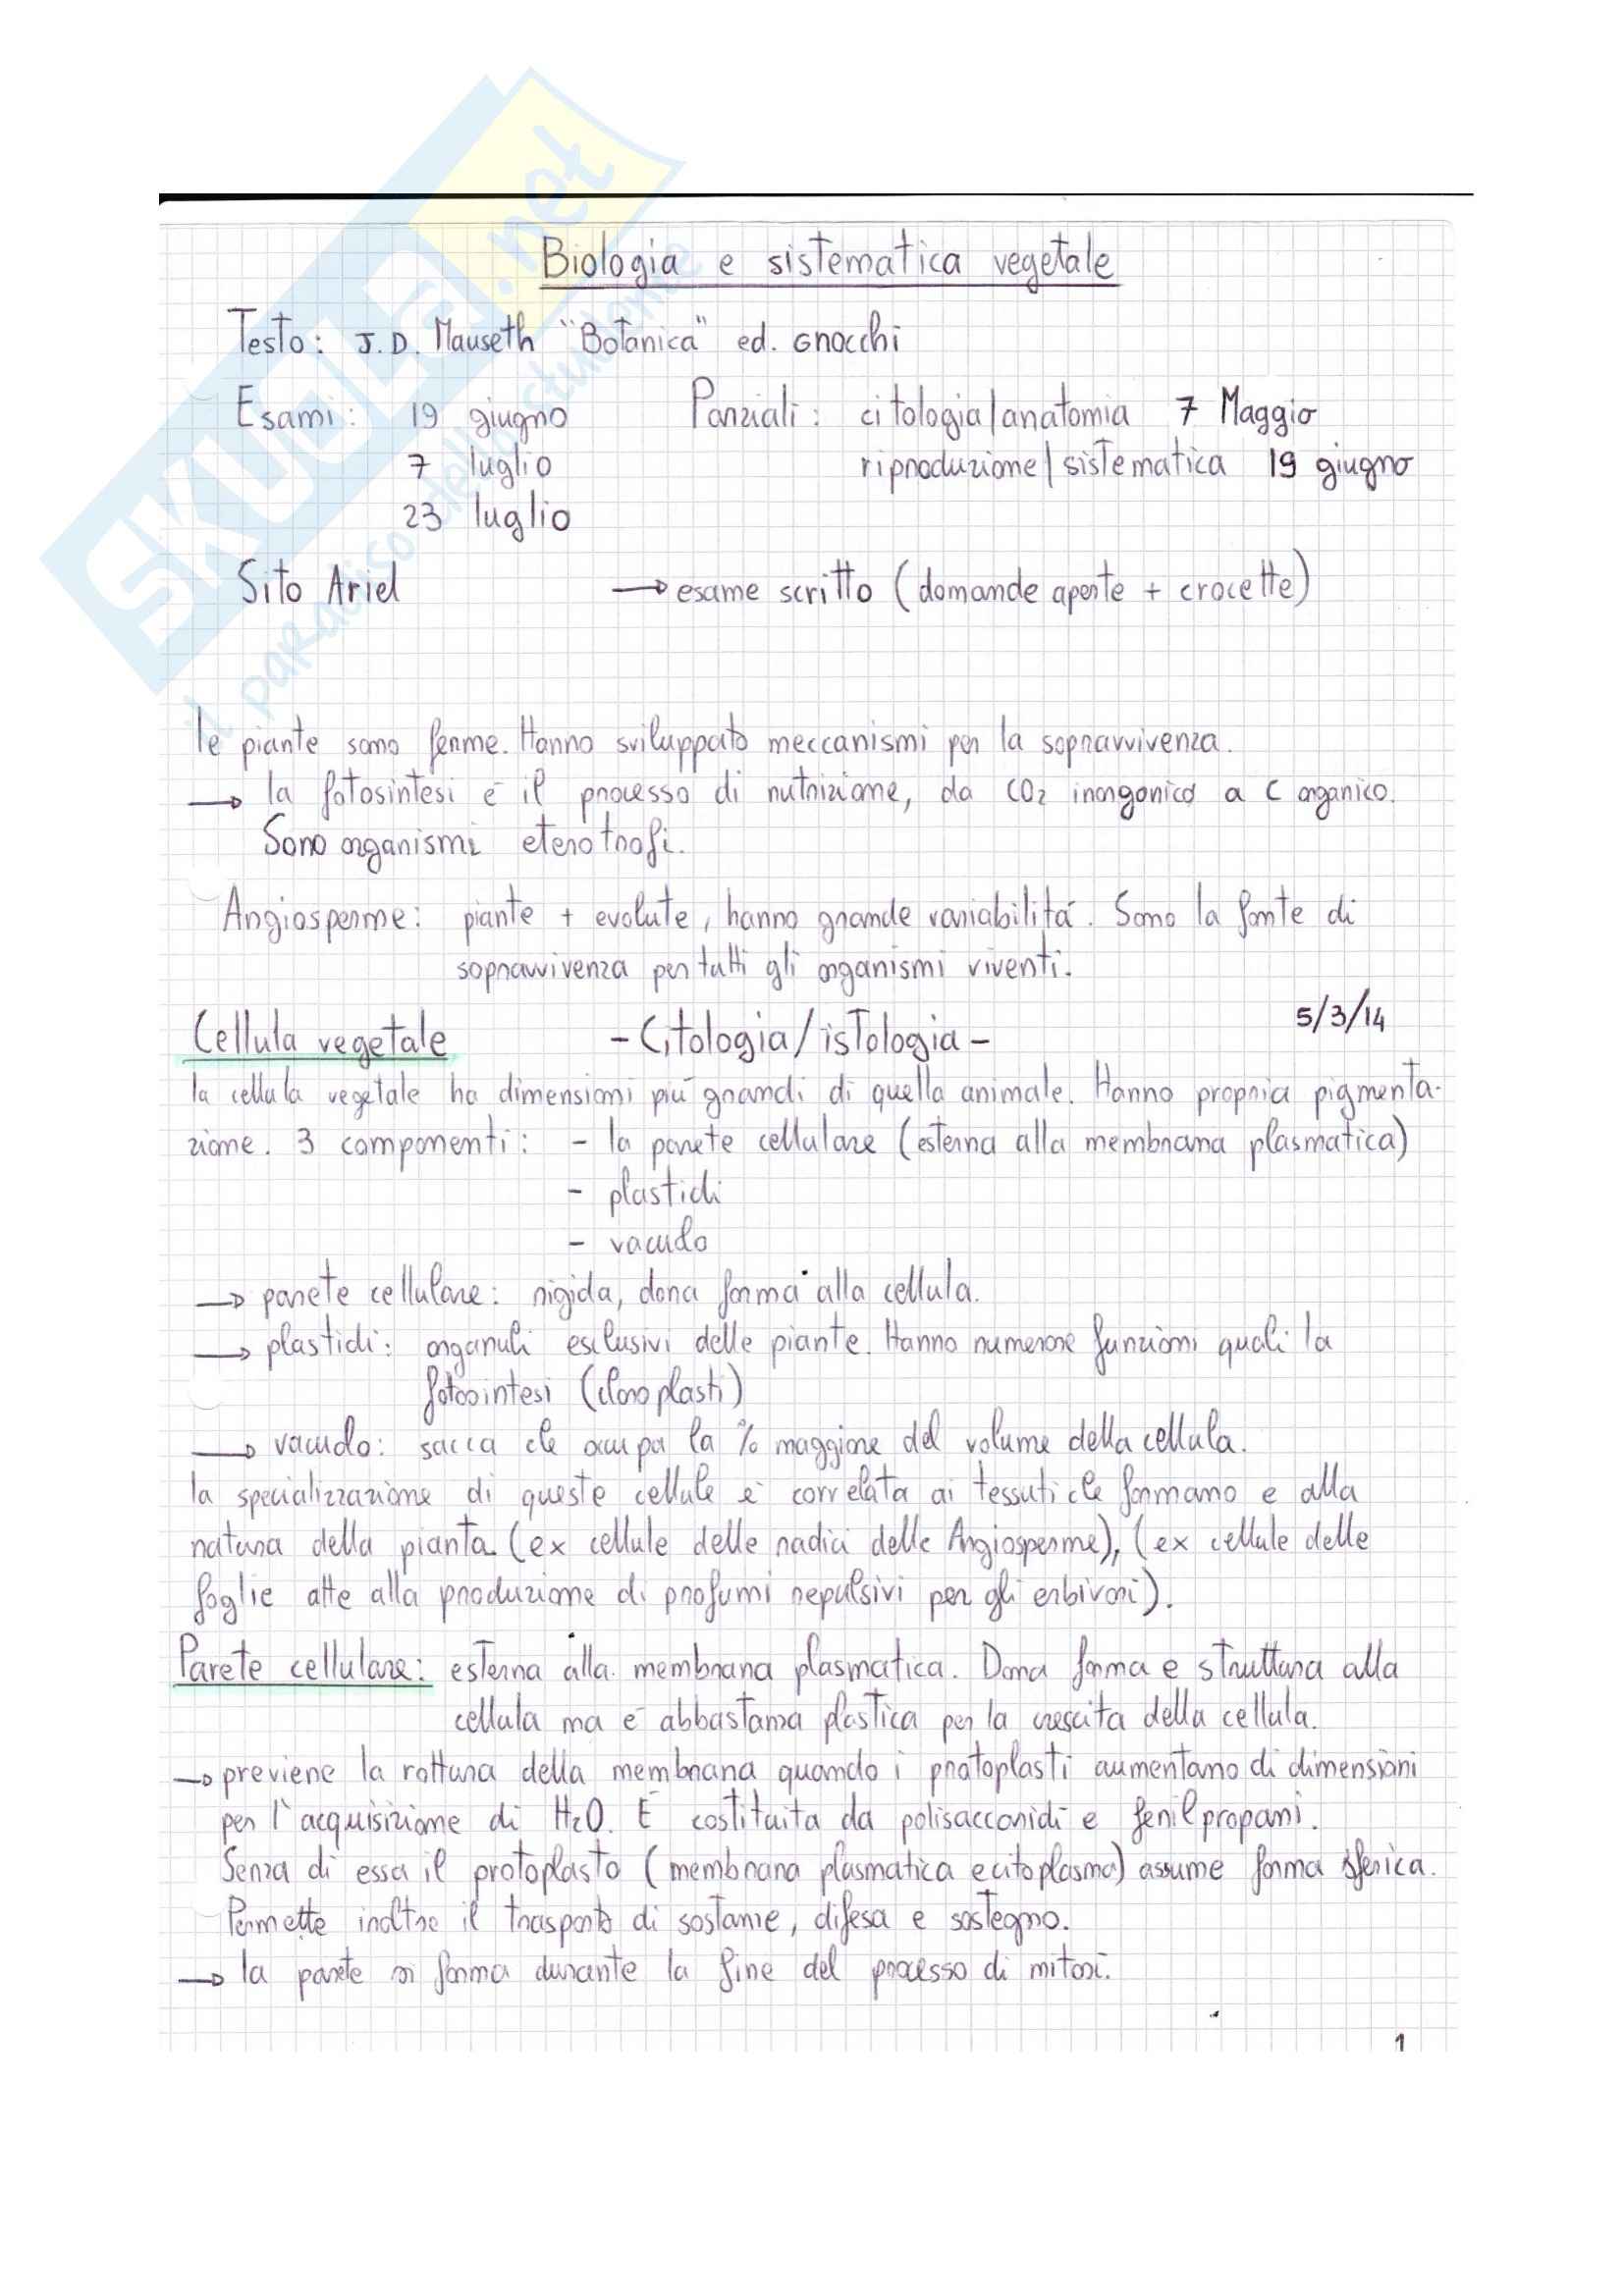 SKUOLA.net
il paradiso dello studente
Biologia e sistematica vegetale
Testo: J.D. Mauseth "Botanica" ed. Gnocchi
Esami: 19 giugno Parziali: citologia/anatomia 7 Maggio
7 luglio riproduzione/sistematica 19 giugno
23 luglio
Sito Ariel → esame scritto (domande aperte + crocette)
le piante sono ferme. Hanno sviluppato meccanismi per la sopravvivenza.
→ la fotosintesi è il processo di nutrizione, da CO2 inorgonico a C organico.
Sono organismi eterotrofi.
Angiosperme: piante + evolute, hanno grande variabilità. Sono la fonte di
sopravvivenza per tutti gli organismi viventi.
5/3/14
Cellula vegetale - Citologia/istologia -
la cellula vegetale ha dimensioni più grandi di quella animale. Hanno propria pigmenta-
zione. 3 componenti: - la parete cellulare (esterna alla membrana plasmatica)
- plastidi
- vacuolo
→ parete cellulare: rigida, dona forma alla cellula.
→ plastidi: organuli esclusivi delle piante. Hanno numerose funzioni quali la
fotosintesi (cloroplasti)
→ vacuolo: sacca che occupa la % maggiore del volume della cellula.
la specializzazione di queste cellule è correlata ai tessuti che formano e alla
natura della pianta (ex cellule delle radici delle Angiosperme), (ex cellule delle
foglie atte alla produzione di profumi repulsivi per gli erbivori).
Parete cellulare: esterna alla membrana plasmatica. Dona forma e struttura alla
cellula ma è abbastanza plastica per la crescita della cellula.
→ previene la rottura della membrana quando i protoplasti aumentano di dimensioni
per l'acquisizione di H2O. È costituita da polisaccaridi e fenilpropani.
Senza di essa il protoplasto (membrana plasmatica e citoplasma) assume forma sferica.
Permette inoltre il trasporto di sostanze, difesa e sostegno.
→ la parete si forma durante la fine del processo di mitosi.
1